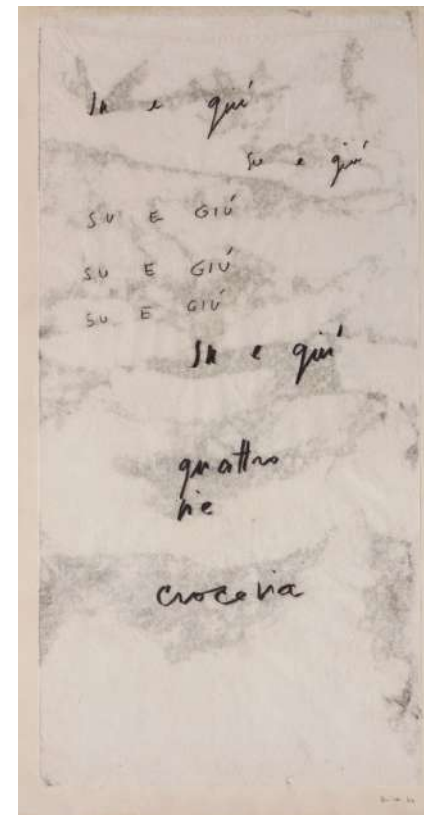 su e giú
su e giú
SU E GIÚ
SU E GIÚ
SU E GIÚ
su e giú
quattro
vie
crocevia